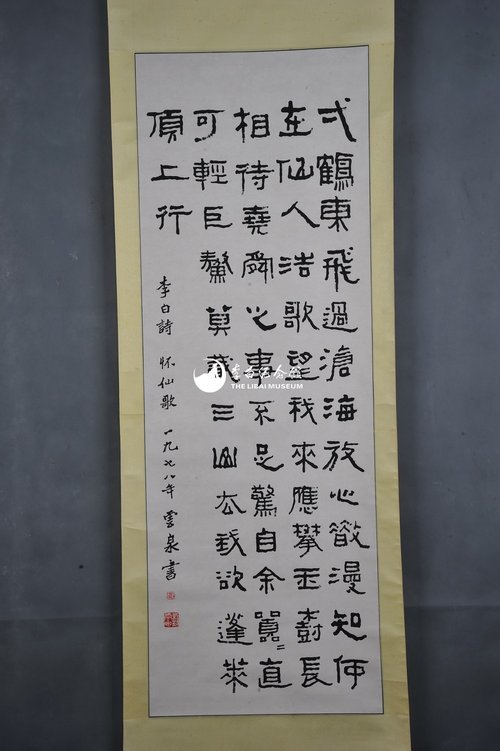 弌鶴東飛過滄海放心散漫知何
在仙人浩歌望我來應攀玉樹長
相待堯舜之事不足驚自余囂〻直
可輕巨鰲莫戴三山去我欲蓬萊
頂上行
李白詩 怀仙歌 一九七八年 雲泉書
李白纪念馆
THE LIBAI MUSEUM